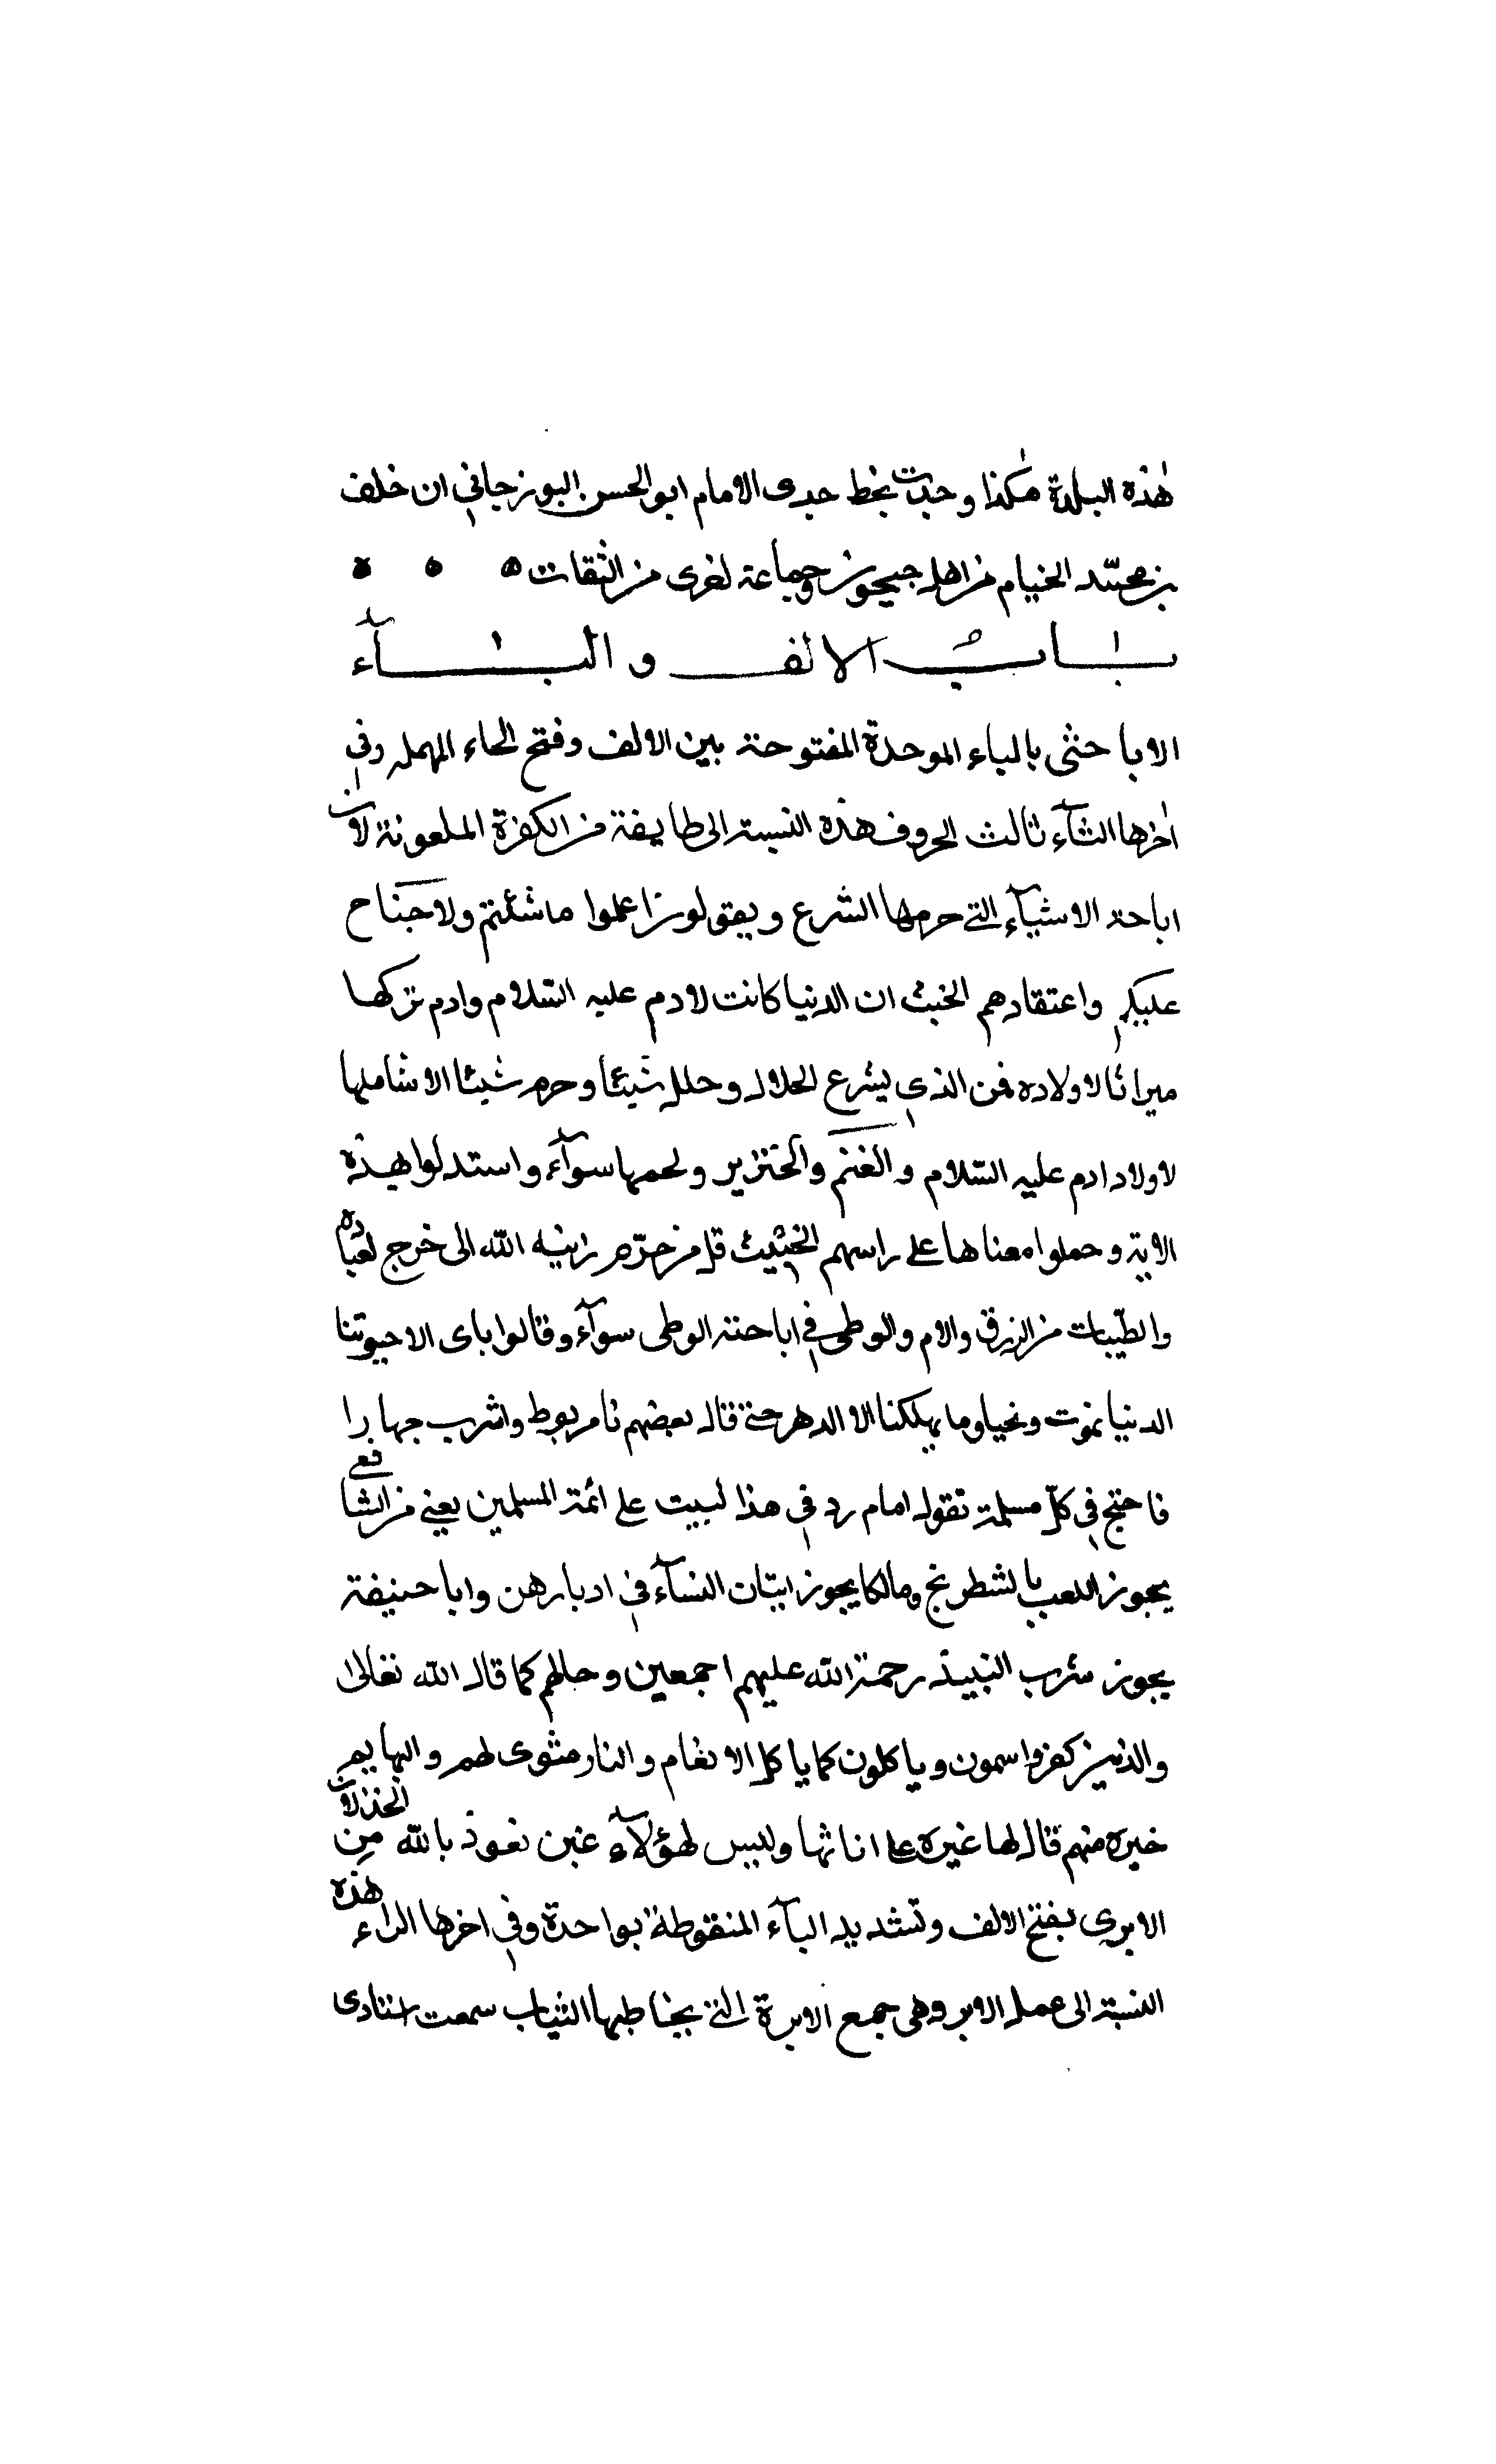 هذه البلدة هكذا وجدت بخط جدى الامام ابو الحسن البوزجاني ان خلف
بن محمد الخيام من اهل جيحون وجماعة لغرى من الثقات
باب الالف والباء
الاباحثى بالباء الموحدة المفتوحة بين الالف وفتح الحاء المهمله وفي
اخرها الثآء ثالث الحروف هذه النسبة الى طايفة من الكفرة الملعونة لان
اباحة الاشيآء التي حرمها الشرع ويقولون اعملوا ما شئتم ولا جناح
عليكم واعتقادهم الخبث ان الدنيا كانت لادم عليه السّلام وادم تركها
ميراثا لاولاده فمن الذي يشرع الحلال وحلل شيئا وحرم شيئا الاشاملها
لاولاد ادم عليه السّلام والغنم والخنزير ولحمها سوآء واستدلوا بهذه
الاية وحملوا معناها على راسهم الخبيث قل من حرّم زاينيه الله الى خرج لعباده
والطيّبات من الرزق والام والوطى في اباحته الوطى سوآء وقالوا باى الاحيوتنا
الدنيا نموت ونحيا وما يهلكنا الا الدهر حتى قال بعضهم نامربوط واشرب جهارا
فاحتج في كلّ مسلمة تقول امام رد في هذا لبيت على ائمة المسلمين يعني من الشافعى
يجوز اللعب بالشطرنج ومالكا يجوز اتيان النسآء في ادبارهن وابا حنيفة
يجوز شرب النبيذ رحمة الله عليهم اجمعين وحالهم كما قال الله تعالى
والذين كفروا سمون وياكلون كما ياكل الانعام والنار مثوى لهم والبهايم
خيره منهم قال لها غيرة على اناثها وليس لهؤلآء عنبن نعوذ بالله من الخذلان
الابرى بفتح الالف وتشديد البآء المنقوطة بواحدة وفي اخرها الراء هذه
النسبة الى عمل الابر وهى جمع الابرة التي يخاط بها الثياب سمعت استادى